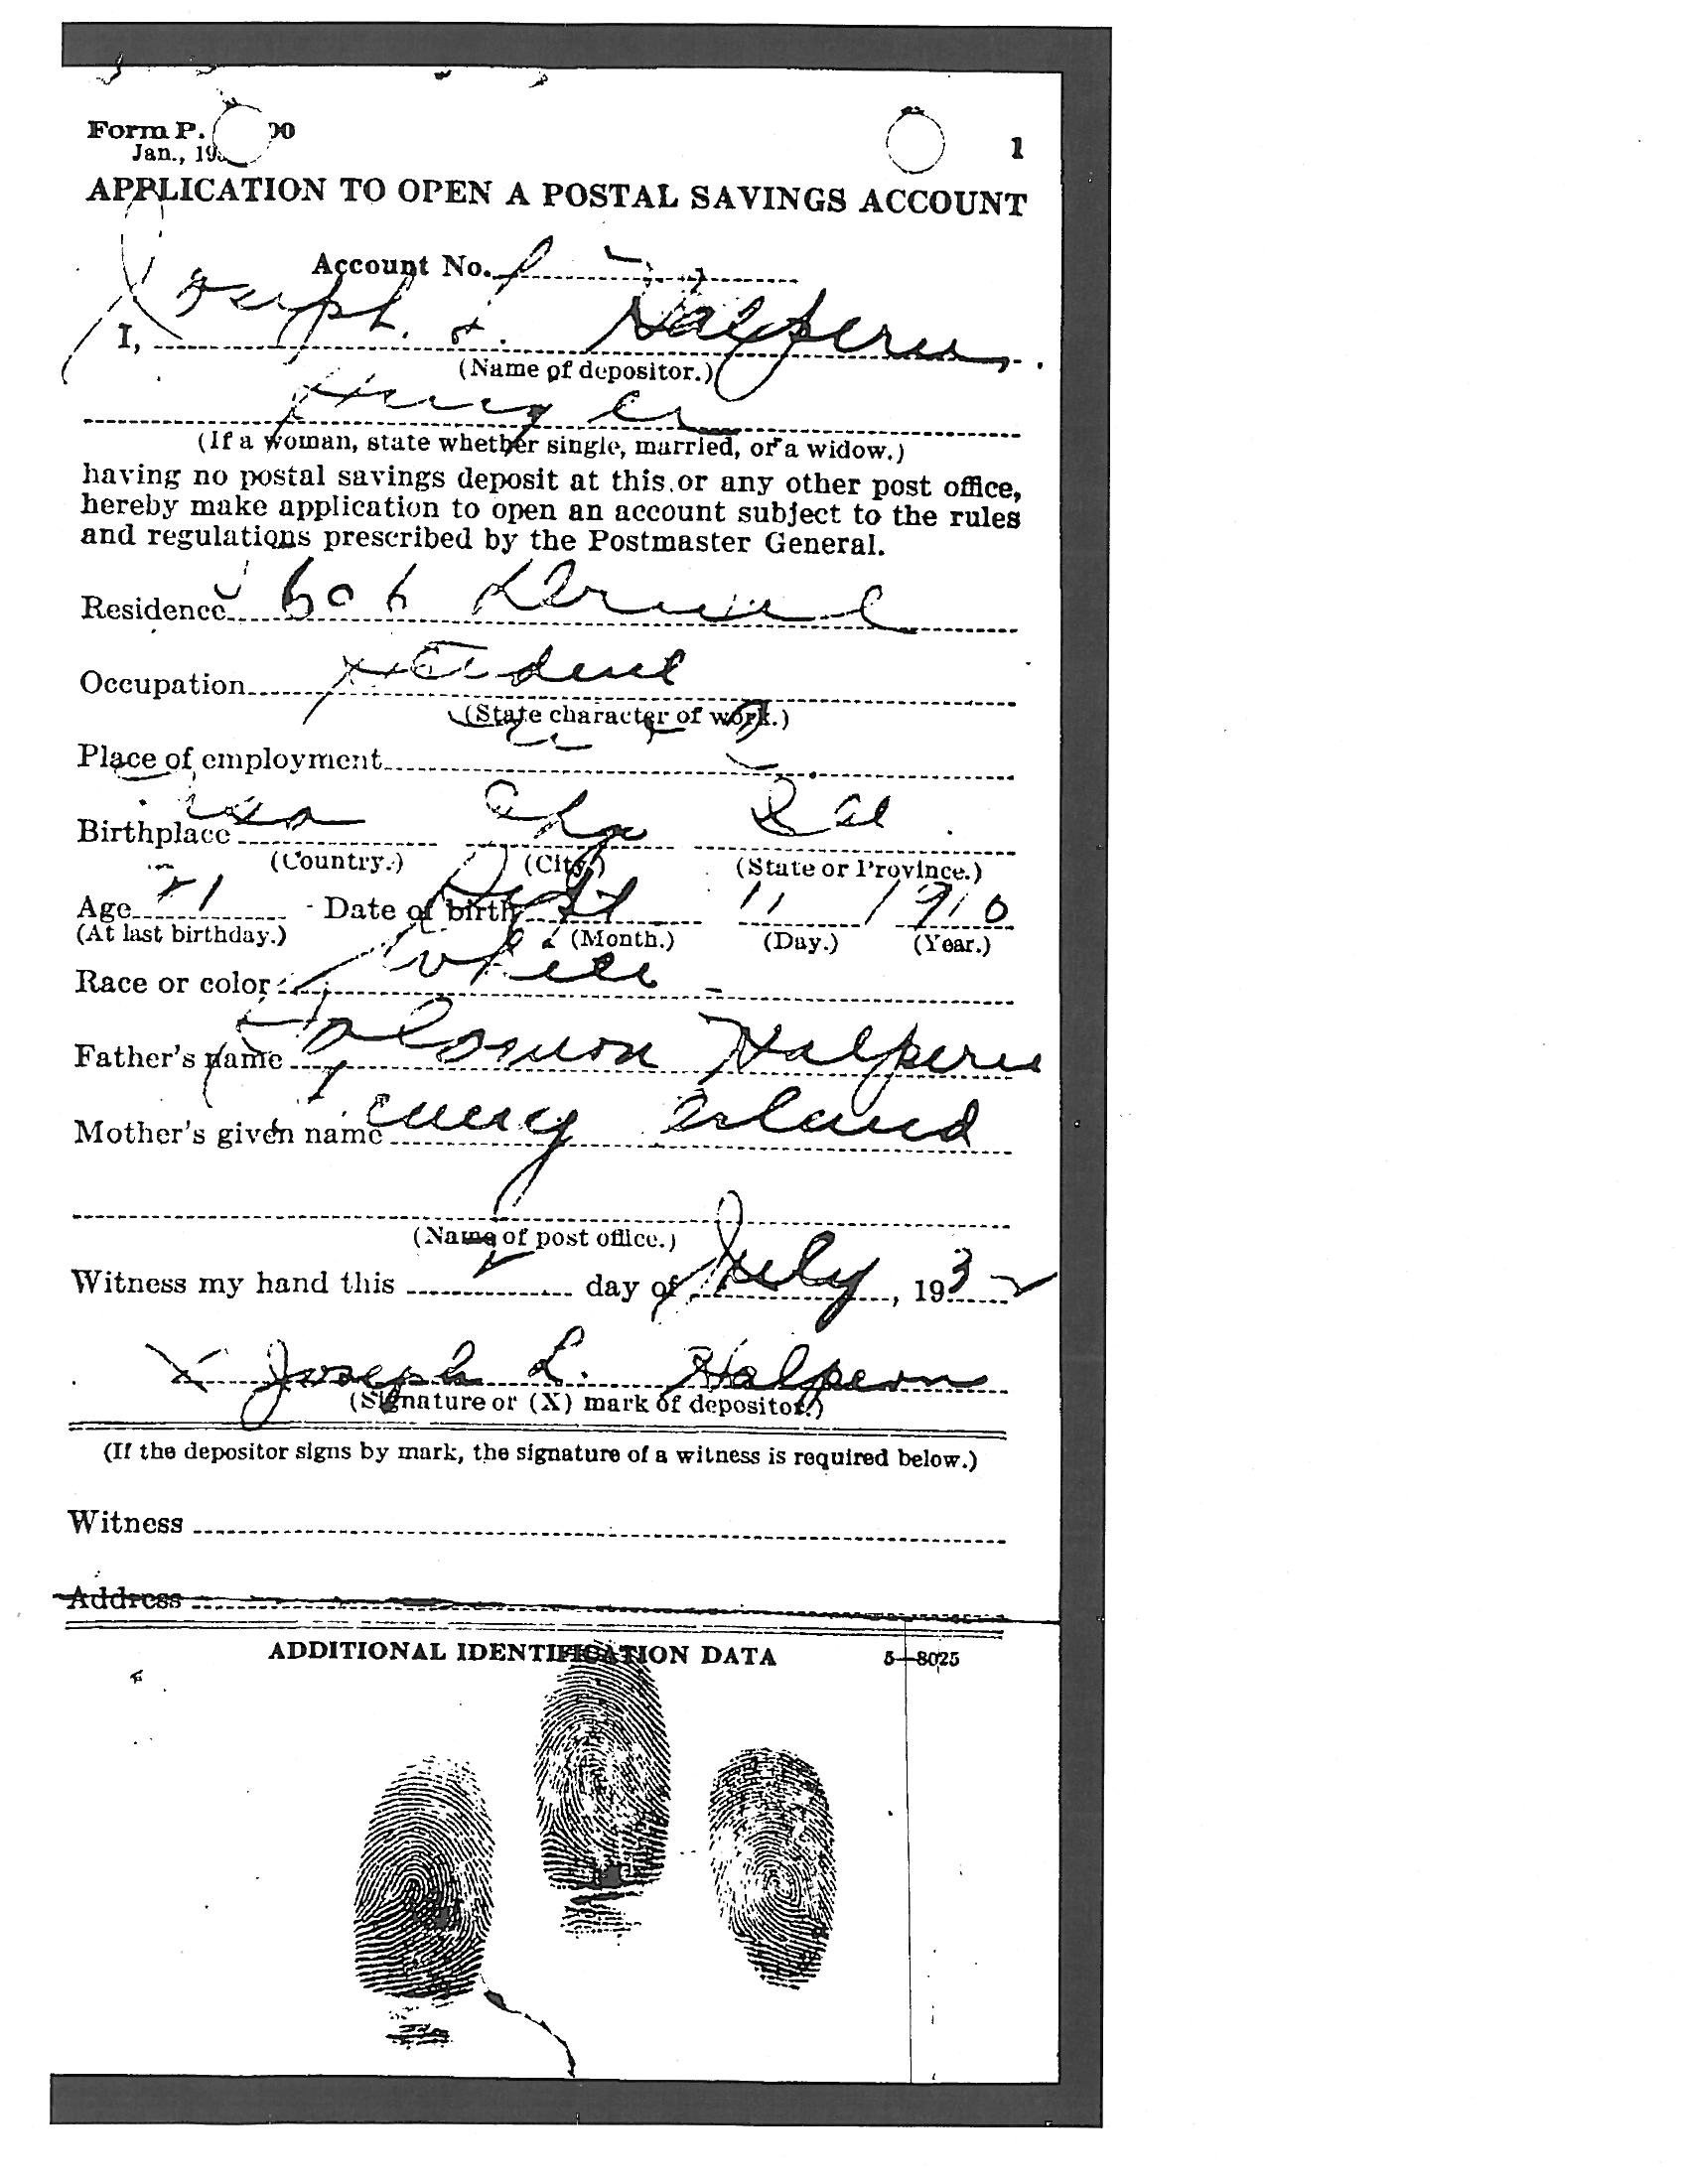 Form P. 00
Jan., 19
1
APPLICATION TO OPEN A POSTAL SAVINGS ACCOUNT
Account No.
I, Joseph L. Halpern
(Name of depositor.)
Single
(If a woman, state whether single, married, or a widow.)
having no postal savings deposit at this or any other post office,
hereby make application to open an account subject to the rules
and regulations prescribed by the Postmaster General.
Residence 606
Occupation Student
(State character of work.)
Place of employment
Birthplace
(Country.) (City.) (State or Province.)
Age 21 Date of birth Sept 11 1910
(At last birthday.) (Month.) (Day.) (Year.)
Race or color White
Father's name Solomon Halpern
Mother's given name
(Name of post office.)
Witness my hand this day of July, 1932
X Joseph L. Halpern
(Signature or (X) mark of depositor.)
(If the depositor signs by mark, the signature of a witness is required below.)
Witness
Address
ADDITIONAL IDENTIFICATION DATA 5—8025